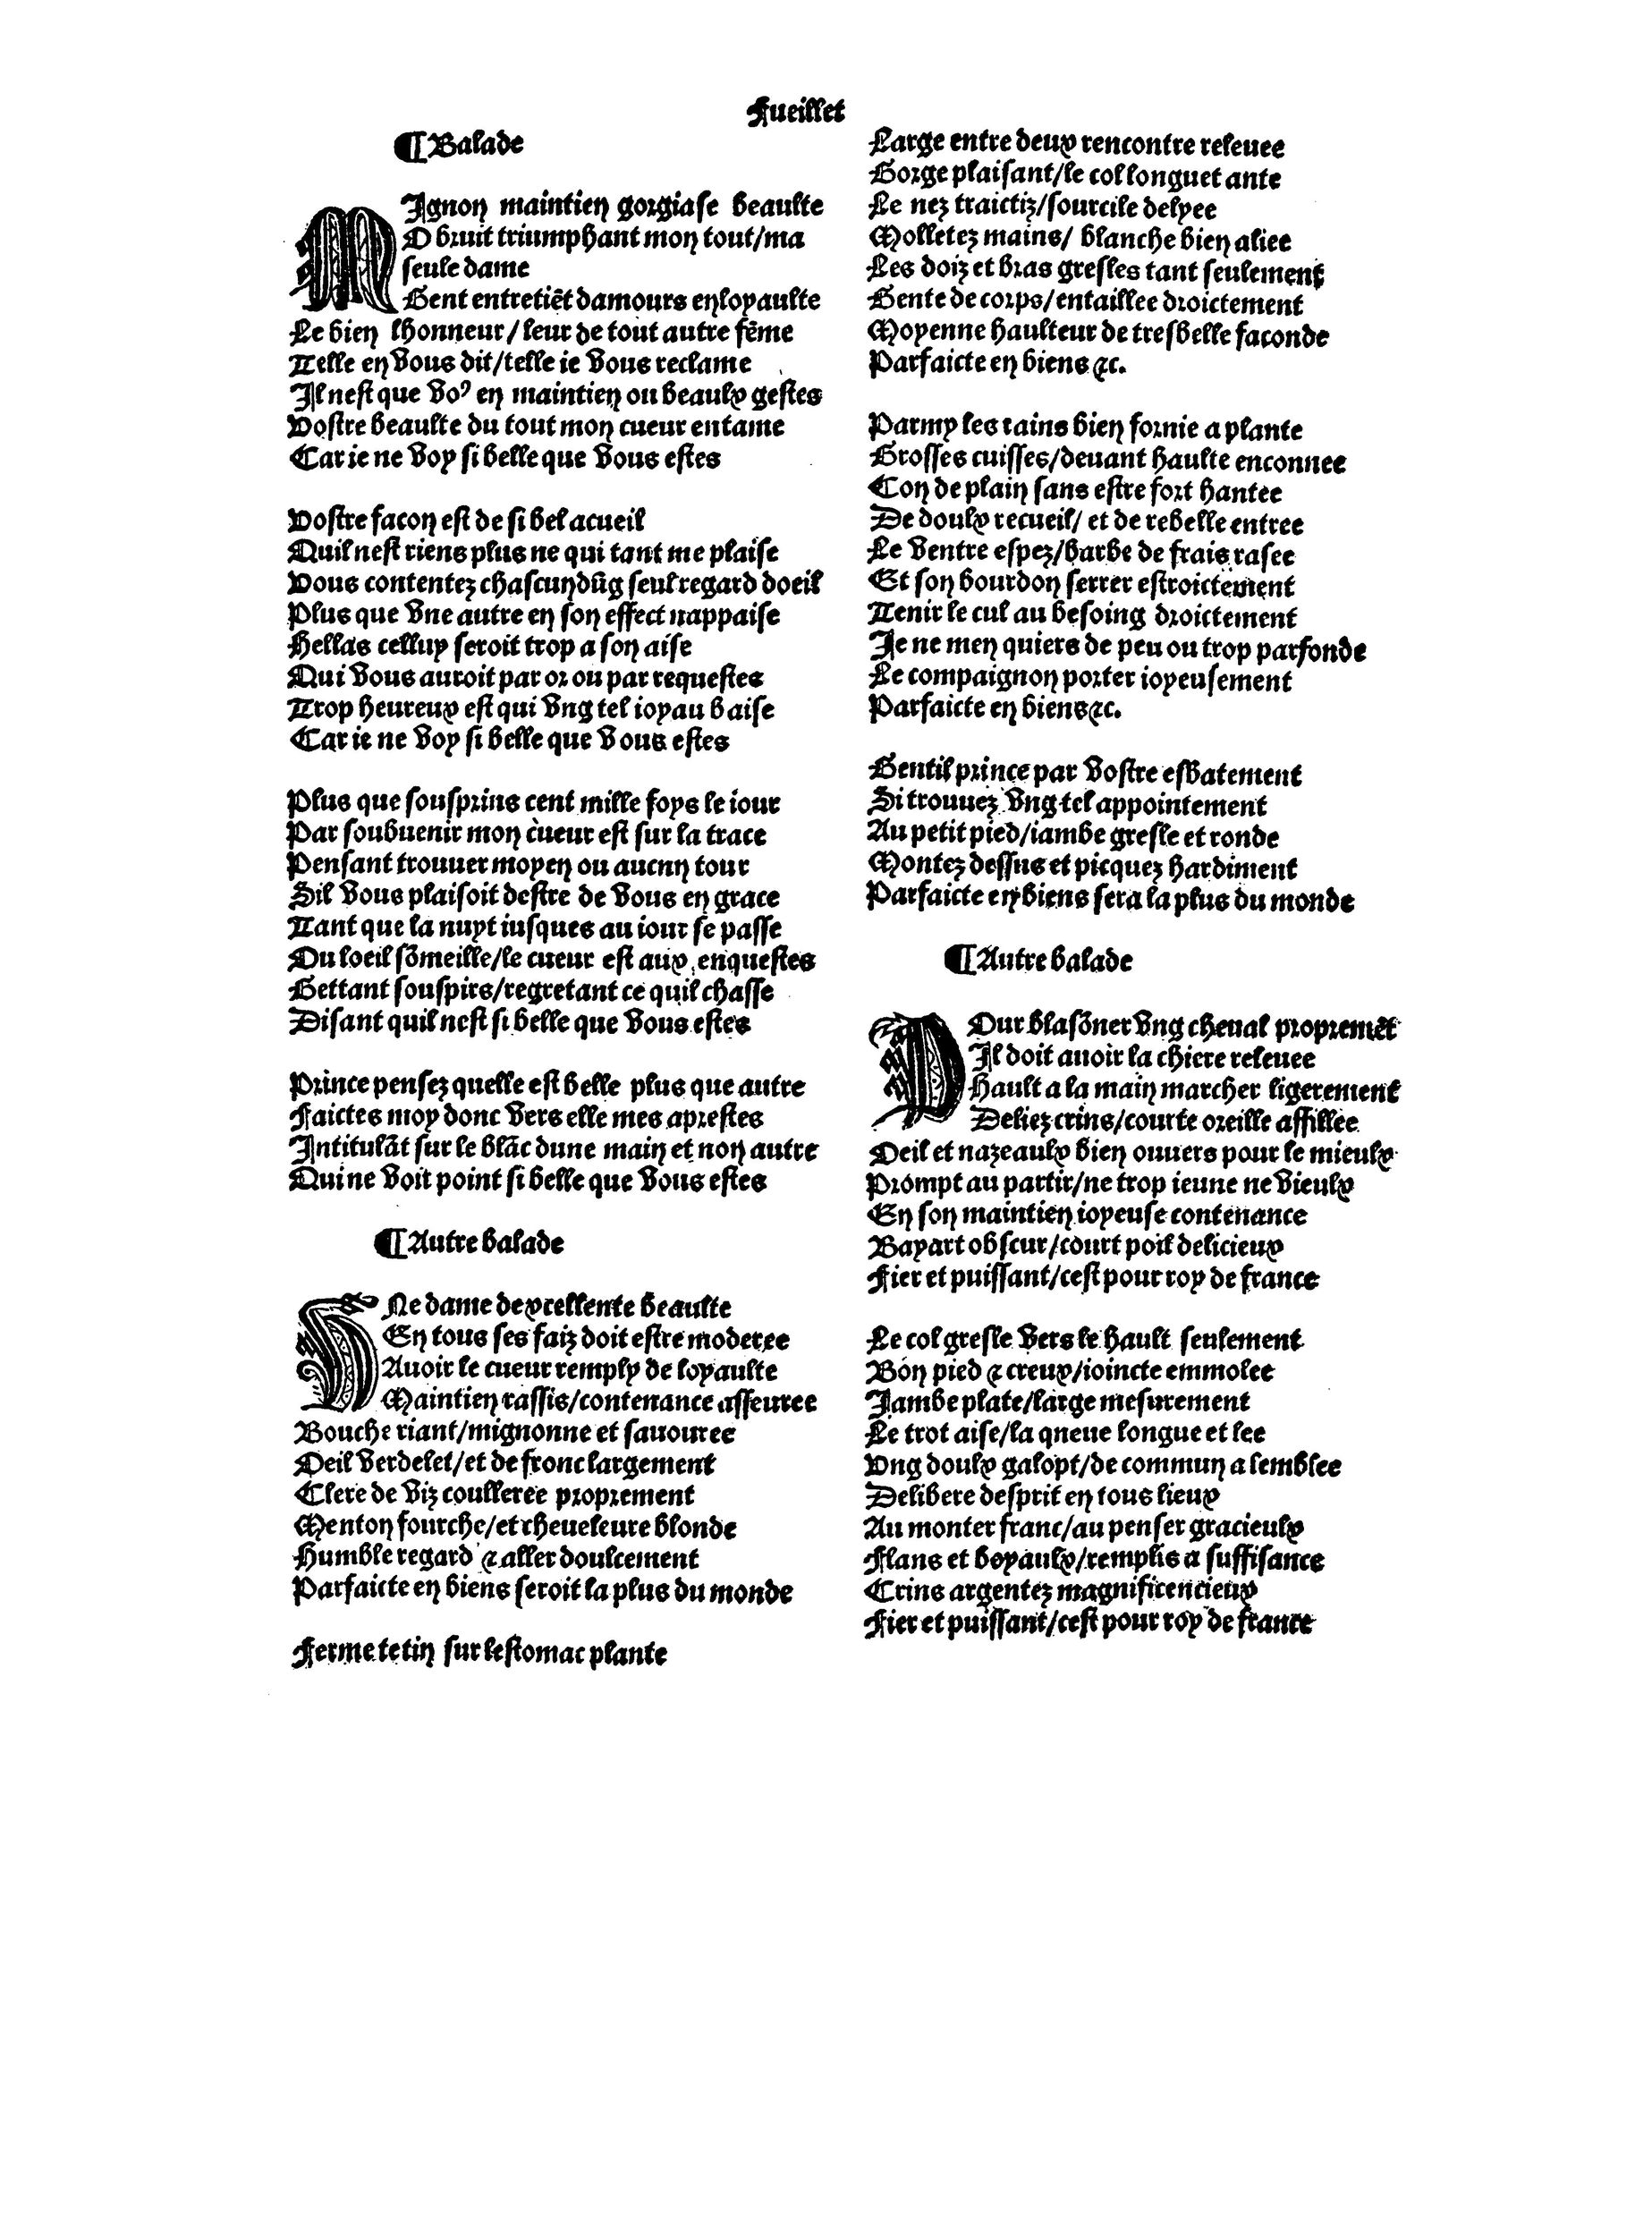 Fueillet
¶ Balade
MIgnon maintien gorgiase beaulte
O bruit triumphant mon tout/ma
seule dame
Gent entretiẽt damours en loyaulte
Le bien lhonneur/leur de tout autre fẽme
Telle en vous dit/telle ie vous reclame
Il nest que voꝰ en maintien ou beaulx gestes
Vostre beaulte du tout mon cueur entame
Car ie ne voy si belle que vous estes
Vostre facon est de si bel acueil
Quil nest riens plus ne qui tant me plaise
Vous contentez chascun dũg seul regard doeil
Plus que vne autre en son effect nappaise
Hellas celluy seroit trop a son aise
Qui vous auroit par or ou par requestes
Trop heureux est qui vng tel ioyau baise
Car ie ne voy si belle que vous estes
Plus que souspzins cent mille foys le iour
Par soubuenir mon cueur est sur la trace
Pensant trouuer moyen ou aucnn tour
Sil vous plaisoit destre de vous en grace
Tant que la nuyt iusques au iour se passe
Ou loeil sõmeille/le cueur est aux enquestes
Gettant souspirs/regretant ce quil chasse
Disant quil nest si belle que vous estes
Prince pensez quelle est belle plus que autre
Faictes moy donc vers elle mes aprestes
Intitulãt sur le blãc dune main et non autre
Qui ne voit point si belle que vous estes
¶ Autre balade
VNe dame dexcellente beaulte
En tous ses faiz doit estre moderee
Auoir le cueur remply de loyaulte
Maintien rassis/contenance asseuree
Bouche riant/mignonne et sauouree
Oeil verdelet/et de fronc largement
Clere de viz coulleree proprement
Menton fourche/et cheueleure blonde
Humble regard ⁊ aller doulcement
Parfaicte en biens seroit la plus du monde
Ferme tetin sur lestomac plante
Large entre deux rencontre releuee
Gorge plaisant/le col longuet ante
Le nez traictiz/sourcile delyee
Molletez mains/ blanche bien aliee
Les doiz et bras gresles tant seulement
Gente de corps/entaillee droictement
Moyenne haulteur de tresbelle faconde
Parfaicte en biens ⁊c.
Parmy les rains bien fornie a plante
Grosses cuisses/deuant haulte enconnee
Con de plain sans estre fort hantee
De doulx recueil/ et de rebelle entree
Le ventre espez/barbe de frais rasee
Et son bourdon serrer estroictement
Tenir le cul au besoing droictement
Je ne men quiers de peu ou trop parfonde
Le compaignon porter ioyeusement
Parfaicte en biens ⁊c.
Gentil prince par vostre esbatement
Si trouuez vng tel appointement
Au petit pied/iambe gresle et ronde
Montez dessus et picquez hardiment
Parfaicte en biens sera la plus du monde
¶ Autre balade
POur blasõner vng cheual propremẽt
Il doit auoir la chiere releuee
Hault a la main marcher ligerement
Deliez crins/courte oreille affillee
Oeil et nazeaulx bien ouuers pour le mieulx
Prompt au partir/ne trop ieune ne vieulx
En son maintien ioyeuse contenance
Bayart obscur/court poil delicieux
Fier et puissant/cest pour roy de france
Le col gresle vers le hault seulement
Bon pied ⁊ creux/ioincte emmolee
Jambe plate/large mesurement
Le trot aise/la qneue longue et lee
Vng doulx galopt/de commun a semblee
Delibere desprit en tous lieux
Au monter franc/au penser gracieulx
Flans et boyaulx/remplis a suffisance
Crins argentez magnificencieux
Fier et puissant/cest pour roy de france